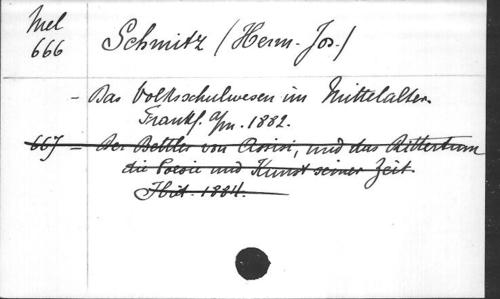 Mel
666
Schmitz (Herm. Jos.)
- Das Volksschulwesen im Mittelalter.
Frankf. a/m. 1882.
667 - Der Bettler von Assisi, und das Rittertum
die Poesie und Kunst seiner Zeit.
Ibid. 1884.